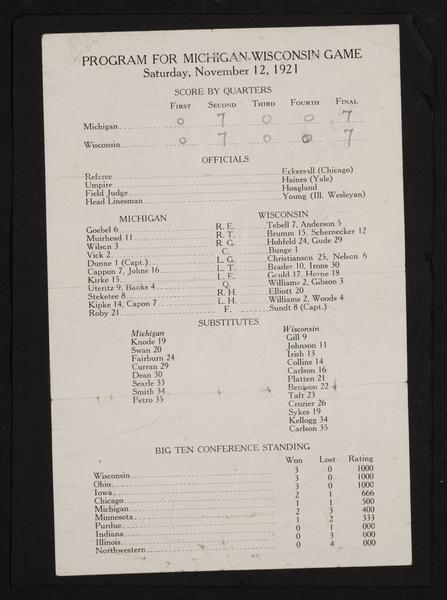 PROGRAM FOR MICHIGAN-WISCONSIN GAME
Saturday, November 12, 1921
SCORE BY QUARTERS
First Second Third Fourth Final
Michigan 0 7 0 0 7
Wisconsin 0 7 0 0 7
OFFICIALS
Referee Eckersall (Chicago)
Umpire Haines (Yale)
Field Judge Hoagland
Head Linesman Young (Ill. Wesleyan)
MICHIGAN WISCONSIN
Goebel 6 R. E. Tebell 7, Anderson 5
Muirhead 11 R. T. Brumm 15, Schernecker 12
Wilson 3 R. G. Hohfeld 24, Gude 29
Vick 2 C. Bunge 1
Dunne 1 (Capt.) L. G. Christianson 25, Nelson 6
Cappon 7, Johns 16 L. T. Brader 10, Irons 30
Kirke 15 L. E. Gould 17, Horne 18
Uteritz 9, Banks 4 Q. Williams 2, Gibson 3
Steketee 8 R. H. Elliott 20
Kipke 14, Capon 7 L. H. Williams 2, Woods 4
Roby 21 F. Sundt 8 (Capt.)
SUBSTITUTES
Michigan Wisconsin
Knode 19 Gill 9
Swan 20 Johnson 11
Fairburn 24 Irish 13
Curran 29 Collins 14
Dean 30 Carlson 16
Searle 33 Platten 21
Smith 34 Benison 22
Petro 35 Taft 23
Crozier 26
Sykes 19
Kellogg 34
Carlson 35
BIG TEN CONFERENCE STANDING
Won Lost Rating
Wisconsin 3 0 1000
Ohio 3 0 1000
Iowa 3 0 1000
Chicago 2 1 666
Michigan 1 1 500
Minnesota 2 3 400
Purdue 1 2 333
Indiana 0 1 000
Illinois 0 3 000
Northwestern 0 4 000